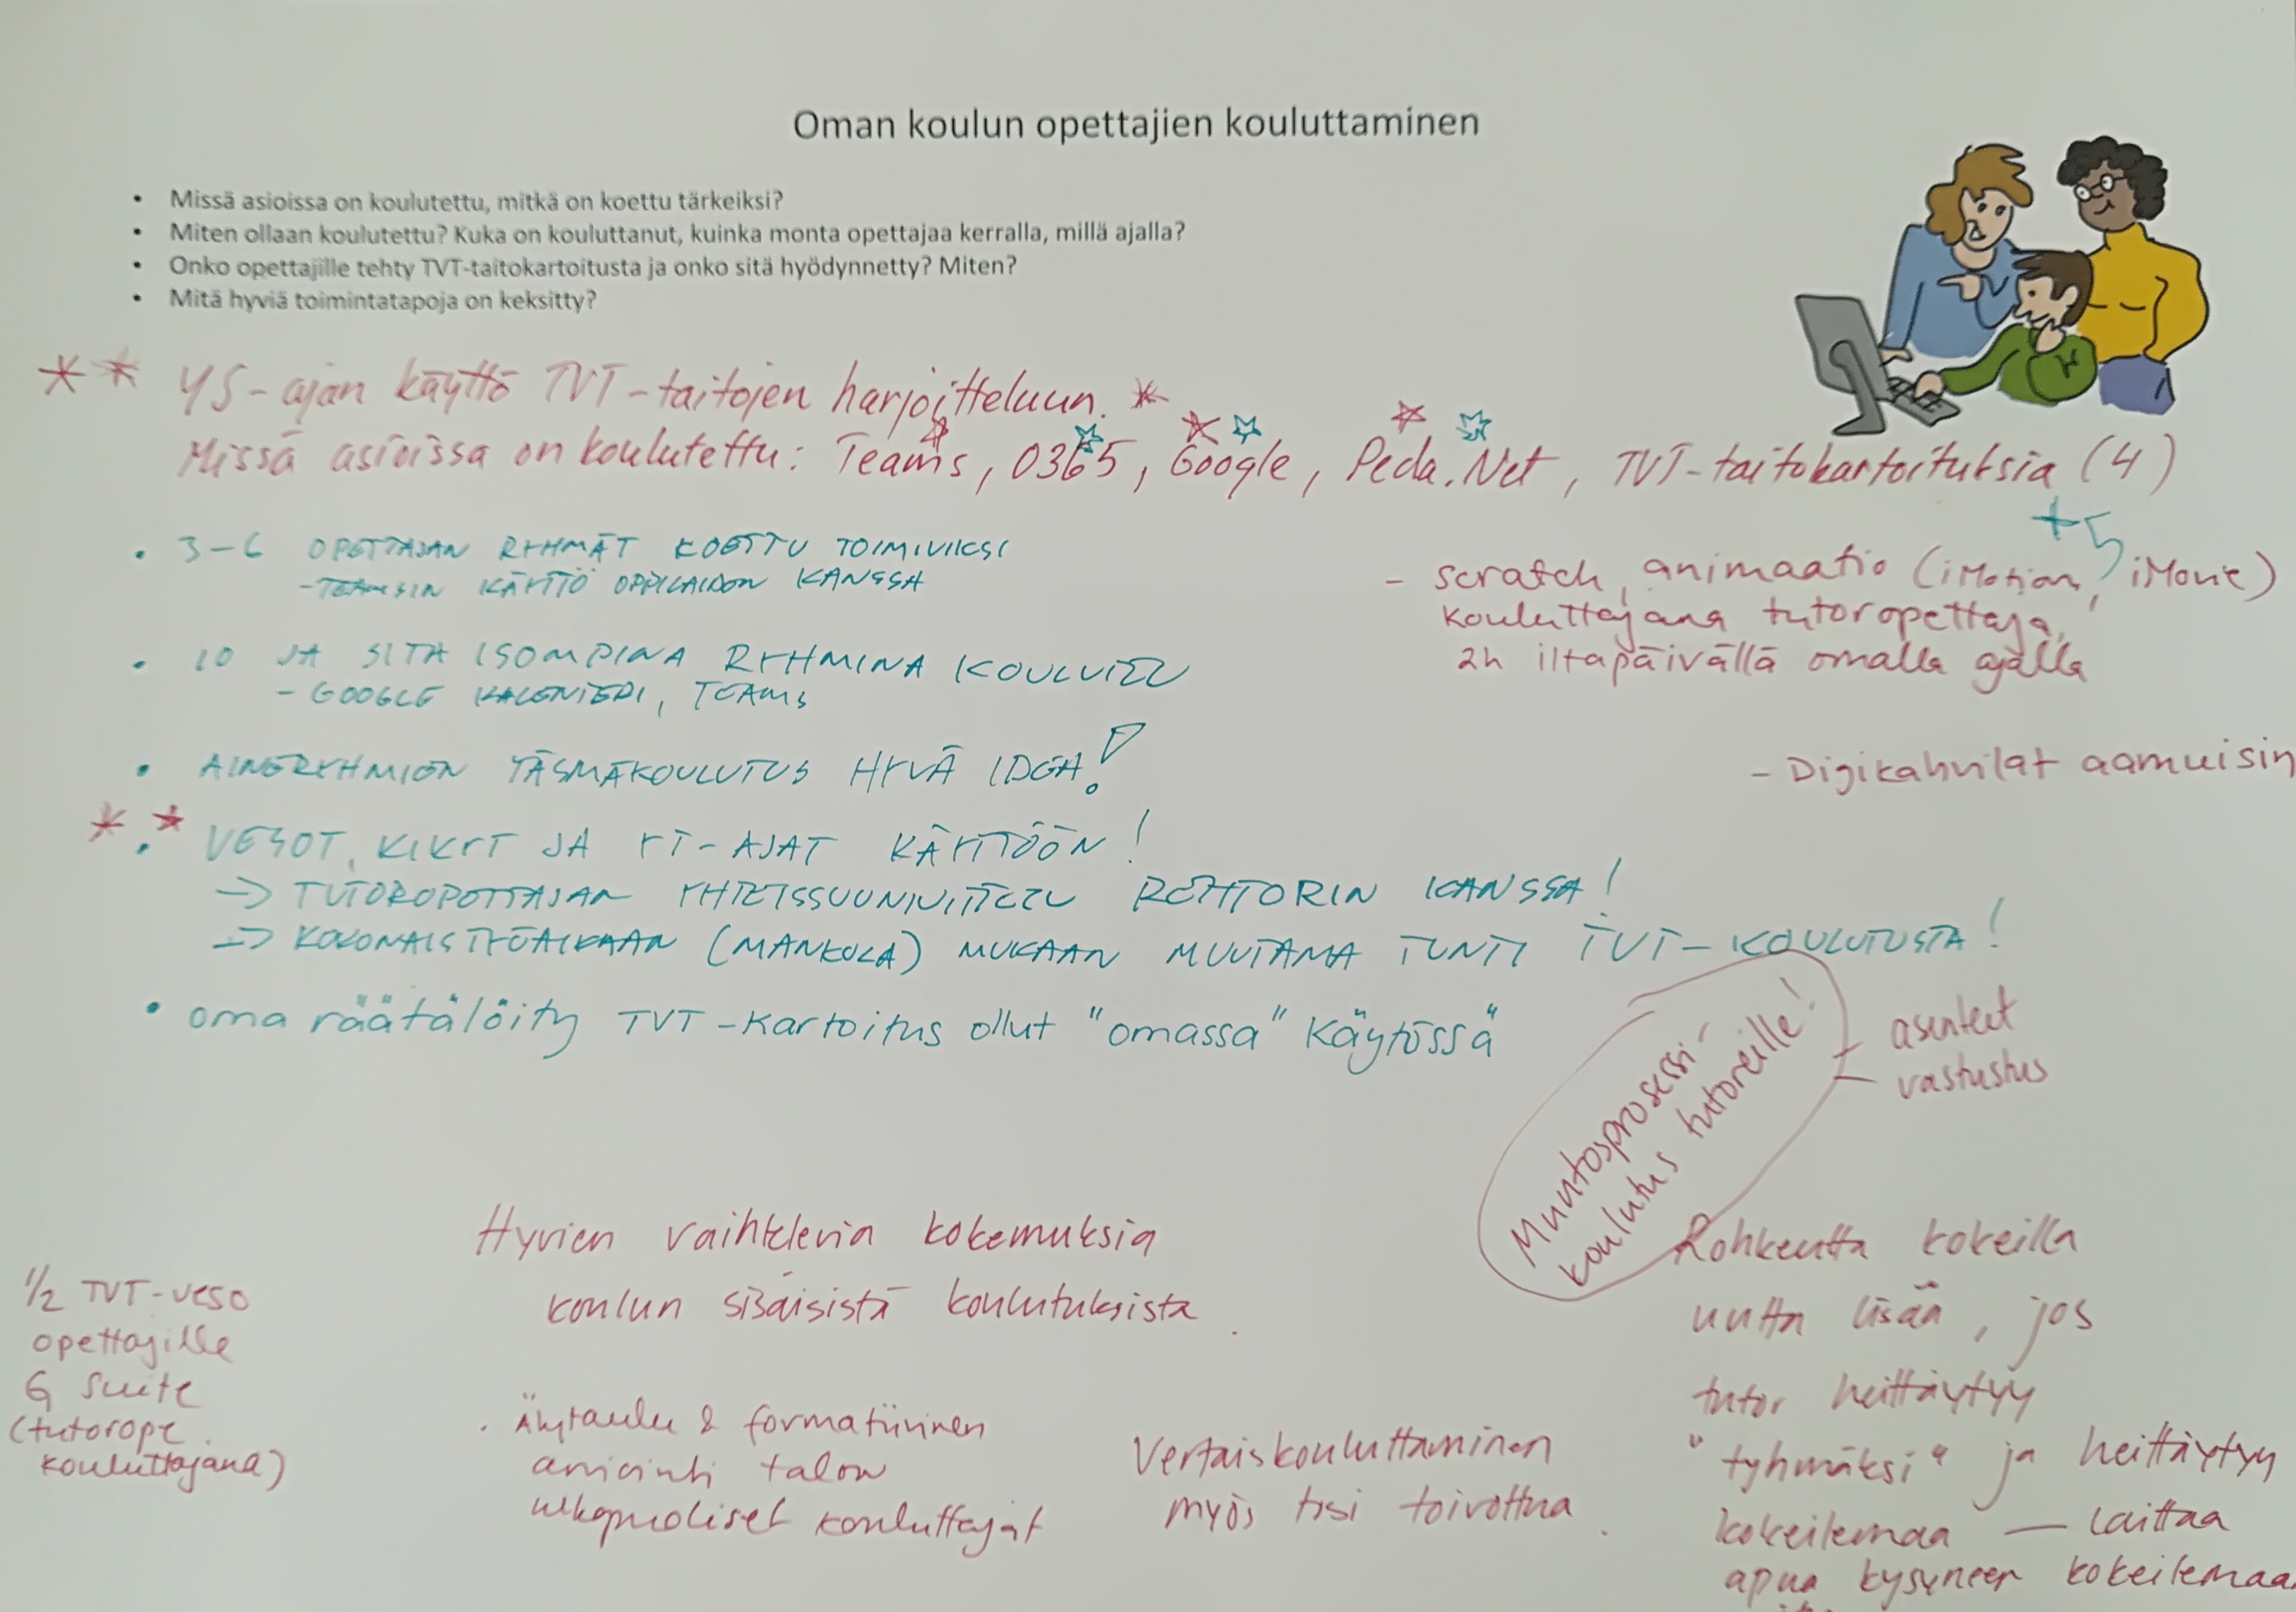 Oman koulun opettajien kouluttaminen
• Missä asioissa on koulutettu, mitkä on koettu tärkeiksi?
• Miten ollaan koulutettu? Kuka on kouluttanut, kuinka monta opettajaa kerralla, millä ajalla?
• Onko opettajille tehty TVT-taitokartoitusta ja onko sitä hyödynnetty? Miten?
• Mitä hyviä toimintatapoja on keksitty?
YS-ajan käyttö TVT-taitojen harjoitteluun.
Missä asioissa on koulutettu: Teams, O365, Google, Peda.Net, TVT-taitokartoituksia (4)
+5
• 3-6 OPETTAJAN RYHMÄT KOETTU TOIMIVIKSI
- TEAMSIN KÄYTTÖ OPPILAIDEN KANSSA
- scratch, animaatio (iMotion, iMovie)
kouluttajana tutoropettaja,
2h iltapäivällä omalla ajalla
• 10 JA SITÄ ISOMPINA RYHMINÄ KOULUTTU
- GOOGLE KALENTERI, TEAMS
- Digikahvilat aamuisin
• AINERYHMIEN TÄSMÄKOULUTUS HYVÄ IDEA!
• VESOT, KIKYT JA YT-AJAT KÄYTTÖÖN!
→ TUTOROPETTAJAN YHTEISSUUNNITTELU REHTORIN KANSSA!
→ KOKONAISTYÖAIKAAN (MANKOLA) MUKAAN MUUTAMA TUNTI TVT-KOULUTUSTA!
• oma räätälöity TVT-kartoitus ollut "omassa" käytössä
Muutosprosessi-
koulutus tutoreille!
- asenteet
- vastustus
Hyvien vaihtelevia kokemuksia
koulun sisäisistä koulutuksista.
1/2 TVT-veso
opettajille
G Suite
(tutorope
kouluttajana)
• Älytaulu & formatiivinen
arviointi talon
ulkopuoliset kouluttajat
Vertaiskouluttaminen
myös tosi toivottua.
Rohkeutta kokeilla
uutta lisää, jos
tutor heittäytyy
"tyhmäksi" ja heittäytyy
kokeilemaa — laittaa
apua kysyneen kokeilemaa